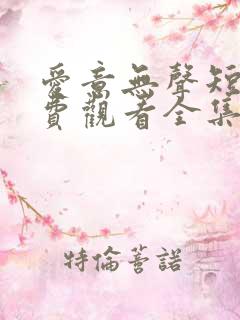 愛意無聲短
費觀看全集
特倫蓍諾